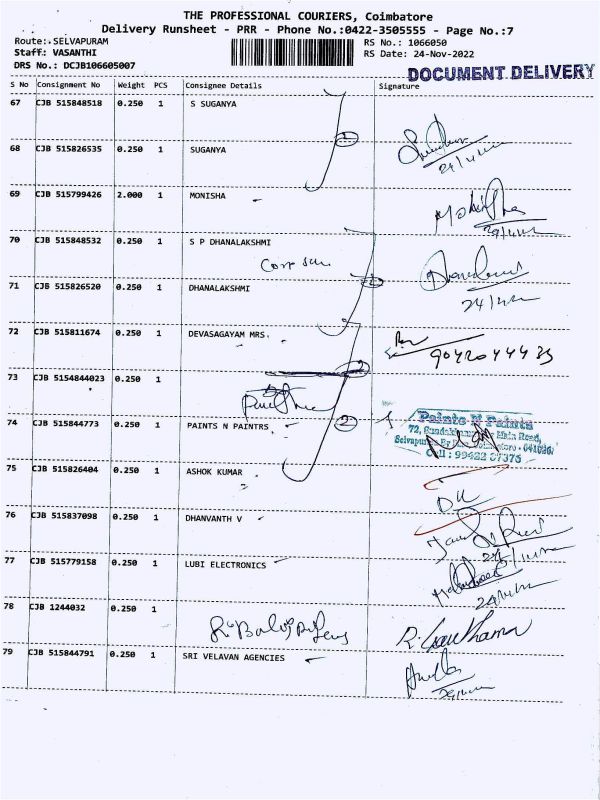 THE PROFESSIONAL COURIERS, Coimbatore
Delivery Runsheet - PRR - Phone No.:0422-3505555 - Page No.:7
Route: SELVAPURAM RS No.: 1066050
Staff: VASANTHI RS Date: 24-Nov-2022
DRS No.: DCJB106605007
DOCUMENT DELIVERY
S No Consignment No Weight PCS Consignee Details Signature
67 CJB 515848518 0.250 1 S SUGANYA
68 CJB 515826535 0.250 1 SUGANYA
69 CJB 515799426 2.000 1 MONISHA
70 CJB 515848532 0.250 1 S P DHANALAKSHMI
71 CJB 515826520 0.250 1 DHANALAKSHMI
72 CJB 515811674 0.250 1 DEVASAGAYAM MRS.
73 CJB 5154844023 0.250 1
74 CJB 515844773 0.250 1 PAINTS N PAINTRS
2
Paints N Paints
72, Main Road,
Cell : 99422 07376
75 CJB 515826404 0.250 1 ASHOK KUMAR
76 CJB 515837098 0.250 1 DHANVANTH V
77 CJB 515779158 0.250 1 LUBI ELECTRONICS
78 CJB 1244032 0.250 1
R. Gowthama
79 CJB 515844791 0.250 1 SRI VELAVAN AGENCIES